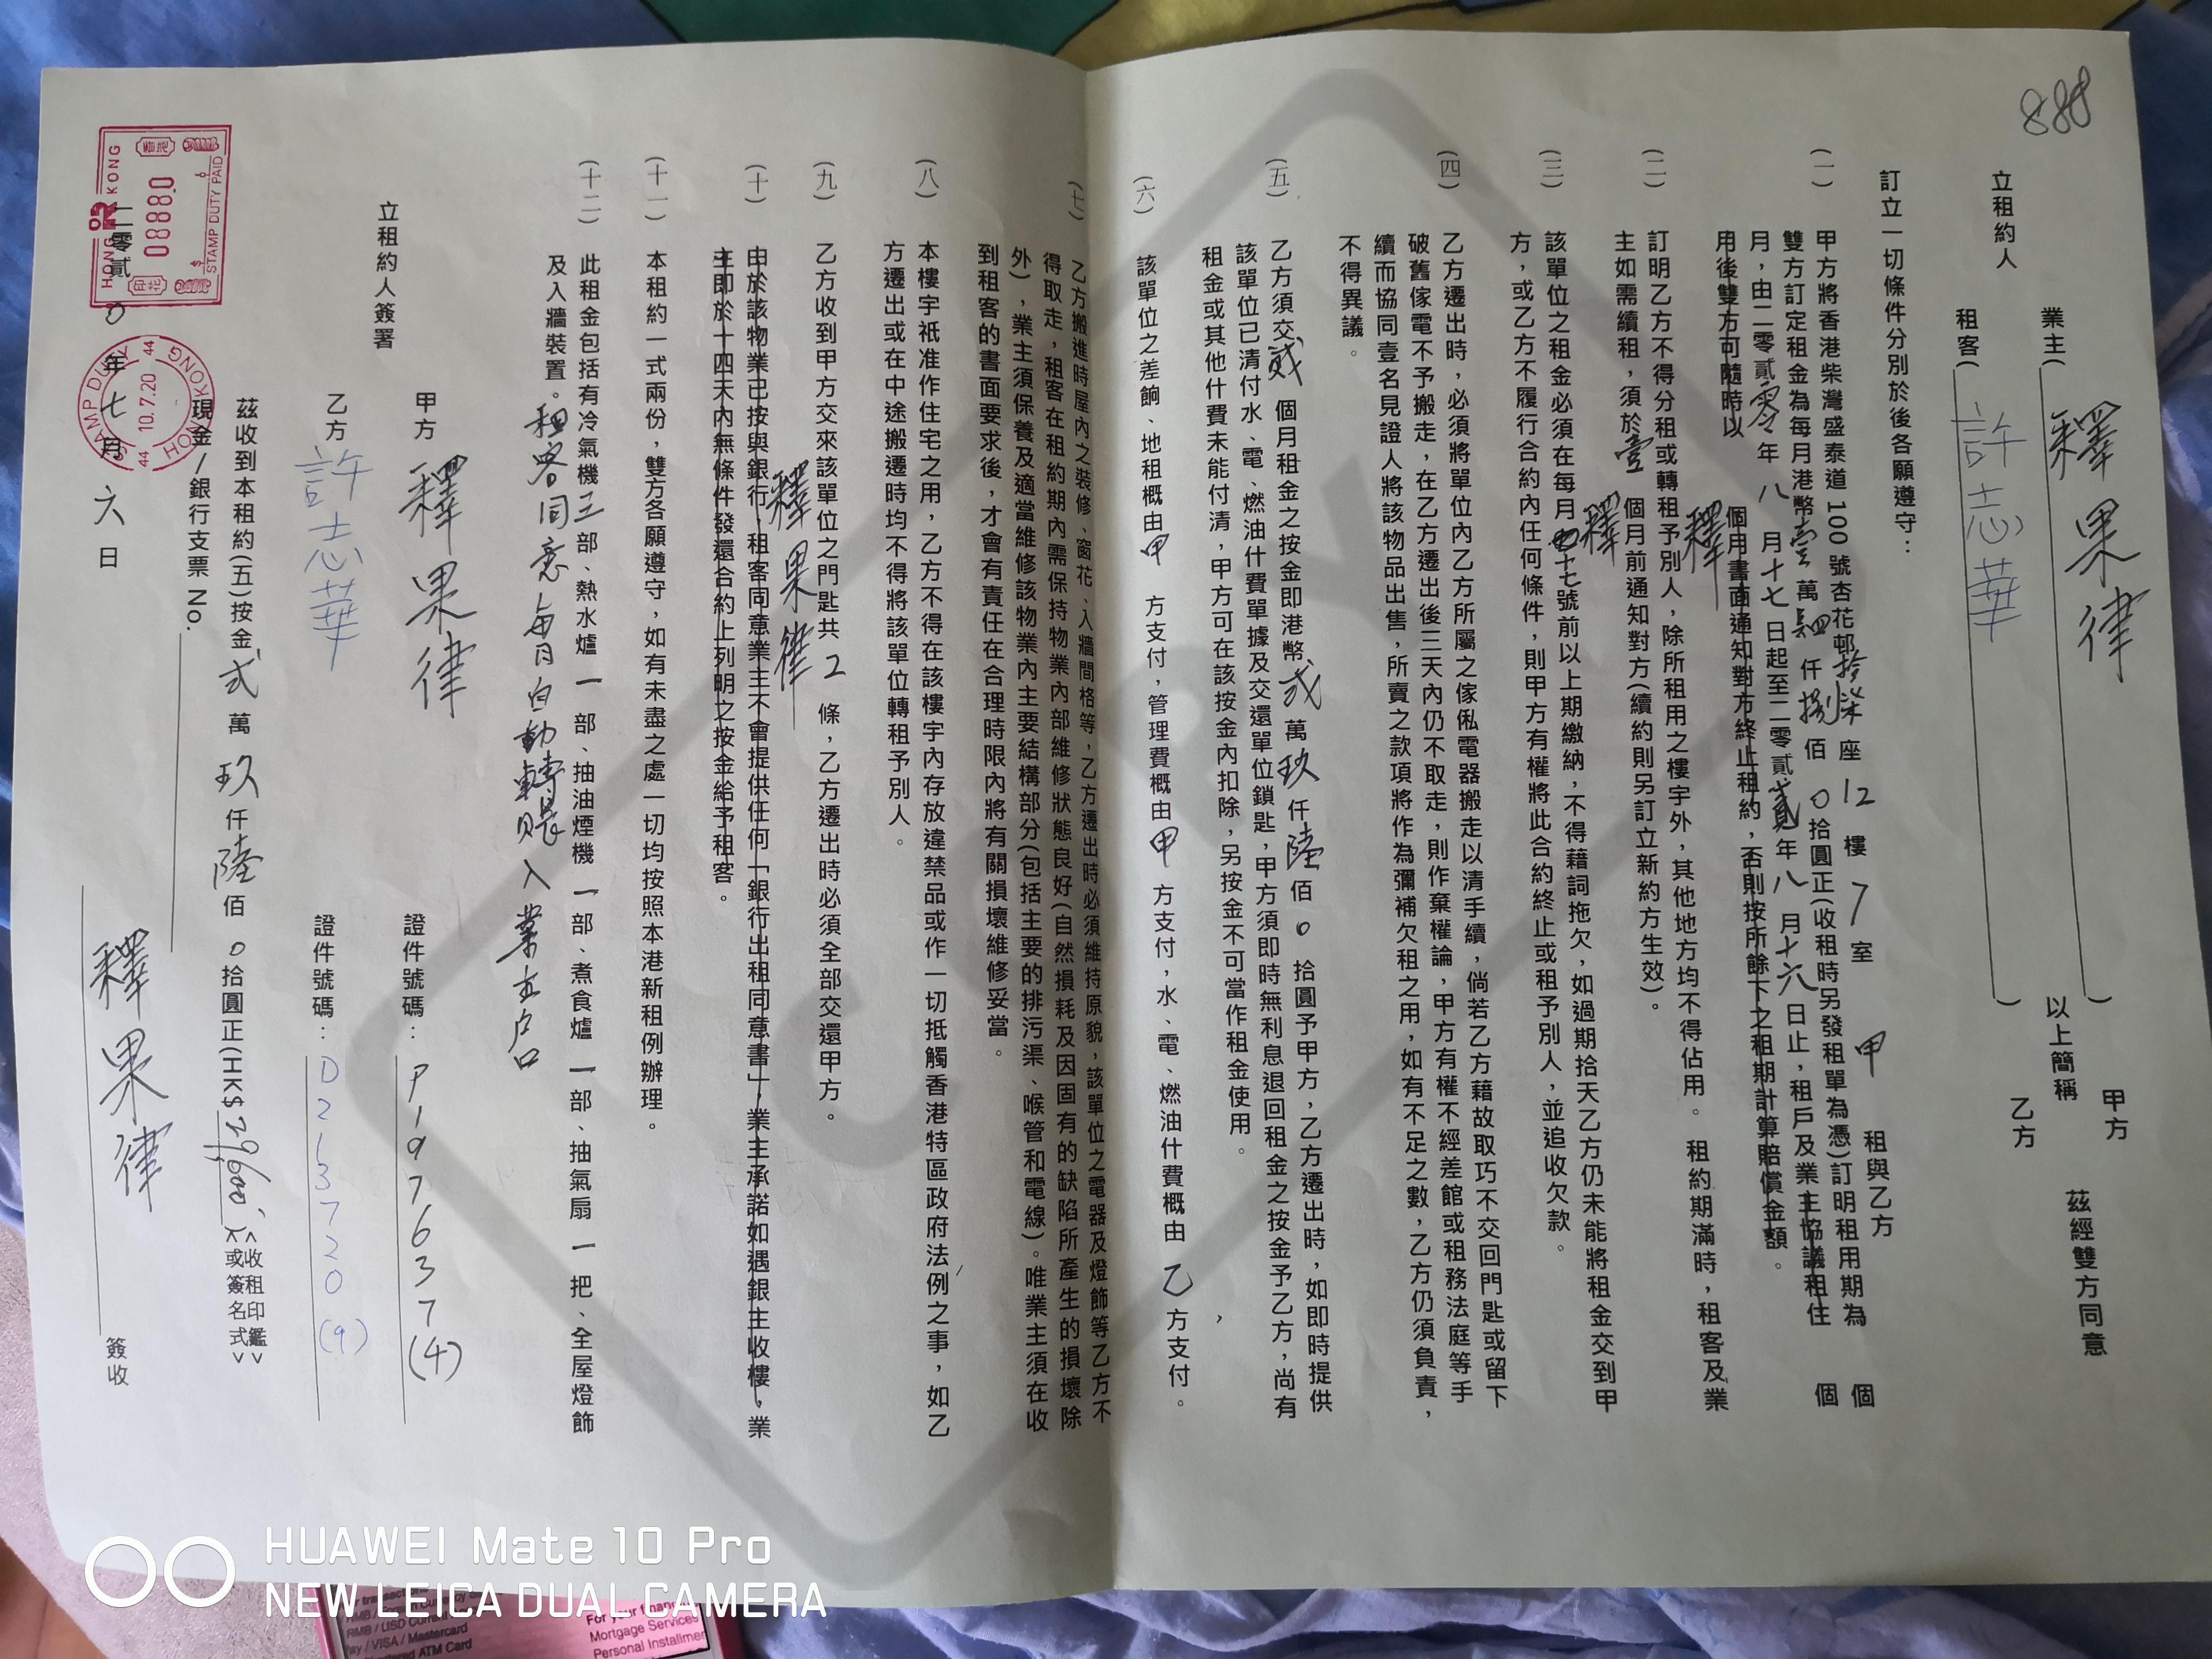 888
立租約人
業主(釋果律) 甲方
以上簡稱 茲經雙方同意
租客(許志華) 乙方
訂立一切條件分別於後各願遵守：
(一) 甲方將香港柴灣盛泰道 100 號杏花邨拾柒座 12 樓 7 室 甲 租與乙方 個
雙方訂定租金為每月港幣壹萬肆仟捌佰0拾圓正(收租時另發租單為憑)訂明租用期為 個
月，由二零貳零年八月十七日起至二零貳貳年八月十六日止，租戶及業主協議租住
用後雙方可隨時以 個月書面通知對方終止租約，否則按所餘下之租期計算賠償金額。
釋
(二) 訂明乙方不得分租或轉租予別人，除所租用之樓宇外，其他地方均不得佔用。 租約期滿時，租客及業
主如需續租，須於壹 個月前通知對方(續約則另訂立新約方生效)。
釋
(三) 該單位之租金必須在每月十七號前以上期繳納，不得藉詞拖欠，如過期拾天乙方仍未能將租金交到甲
方，或乙方不履行合約內任何條件，則甲方有權將此合約終止或租予別人，並追收欠款。
(四) 乙方遷出時，必須將單位內乙方所屬之傢俬電器搬走以清手續，倘若乙方藉故取巧不交回門匙或留下
破舊傢電不予搬走，在乙方遷出後三天內仍不取走，則作棄權論，甲方有權不經差館或租務法庭等手
續而協同壹名見證人將該物品出售，所賣之款項將作為彌補欠租之用，如有不足之數，乙方仍須負責，
不得異議。
(五) 乙方須交貳 個月租金之按金即港幣貳萬玖仟陸佰0拾圓予甲方，乙方遷出時，如即時提供
該單位已清付水、電、燃油什費單據及交還單位鎖匙，甲方須即時無利息退回租金之按金予乙方，尚有
租金或其他什費未能付清，甲方可在該按金內扣除，另按金不可當作租金使用。
(六) 該單位之差餉、地租概由甲 方支付，管理費概由甲 方支付，水、電、燃油什費概由 乙 方支付。
(七) 乙方搬進時屋內之裝修、窗花、入牆間格等，乙方遷出時必須維持原貌，該單位之電器及燈飾等乙方不
得取走，租客在租約期內需保持物業內部維修狀態良好(自然損耗及因固有的缺陷所產生的損壞除
外)，業主須保養及適當維修該物業內主要結構部分(包括主要的排污渠、喉管和電線)。唯業主須在收
到租客的書面要求後，才會有責任在合理時限內將有關損壞維修妥當。
(八) 本樓宇祇准作住宅之用，乙方不得在該樓宇內存放違禁品或作一切抵觸香港特區政府法例之事，如乙
方遷出或在中途搬遷時均不得將該單位轉租予別人。
(九) 乙方收到甲方交來該單位之門匙共 2 條，乙方遷出時必須全部交還甲方。
釋果律
(十) 由於該物業已按與銀行，租客同意業主不會提供任何「銀行出租同意書」，業主承諾如遇銀主收樓，業
主即於十四天內無條件發還合約上列明之按金給予租客。
(十一) 本租約一式兩份，雙方各願遵守，如有未盡之處一切均按照本港新租例辦理。
(十二) 此租金包括有冷氣機三部、熱水爐 一 部、抽油煙機 一部、煮食爐 一部、抽氣扇 一 把、全屋燈飾
及入牆裝置。租客同意每月自動轉賬入業主户口
立租約人簽署
甲方 釋果律 證件號碼： P197637(4)
乙方 許志華 證件號碼： D213720(9)
茲收到本租約(五)按金 弍 萬 玖 仟 陸 佰 0 拾圓正(HK$29,600) <收租印鑑>
<或簽名式>
現金/銀行支票 No.
釋果律 簽收
二零貳0年七月六日
HONG KONG
香港
印花
$ 0888.0
STAMP DUTY PAID
STAMP DUTY
44 10.7.20 44
HONG KONG
COPY
HUAWEI Mate 10 Pro
NEW LEICA DUAL CAMERA
RMB / USD Current
Pay / VISA / Mastercard
ATM Card
For your financ
Mortgage Services
Personal Instalmen